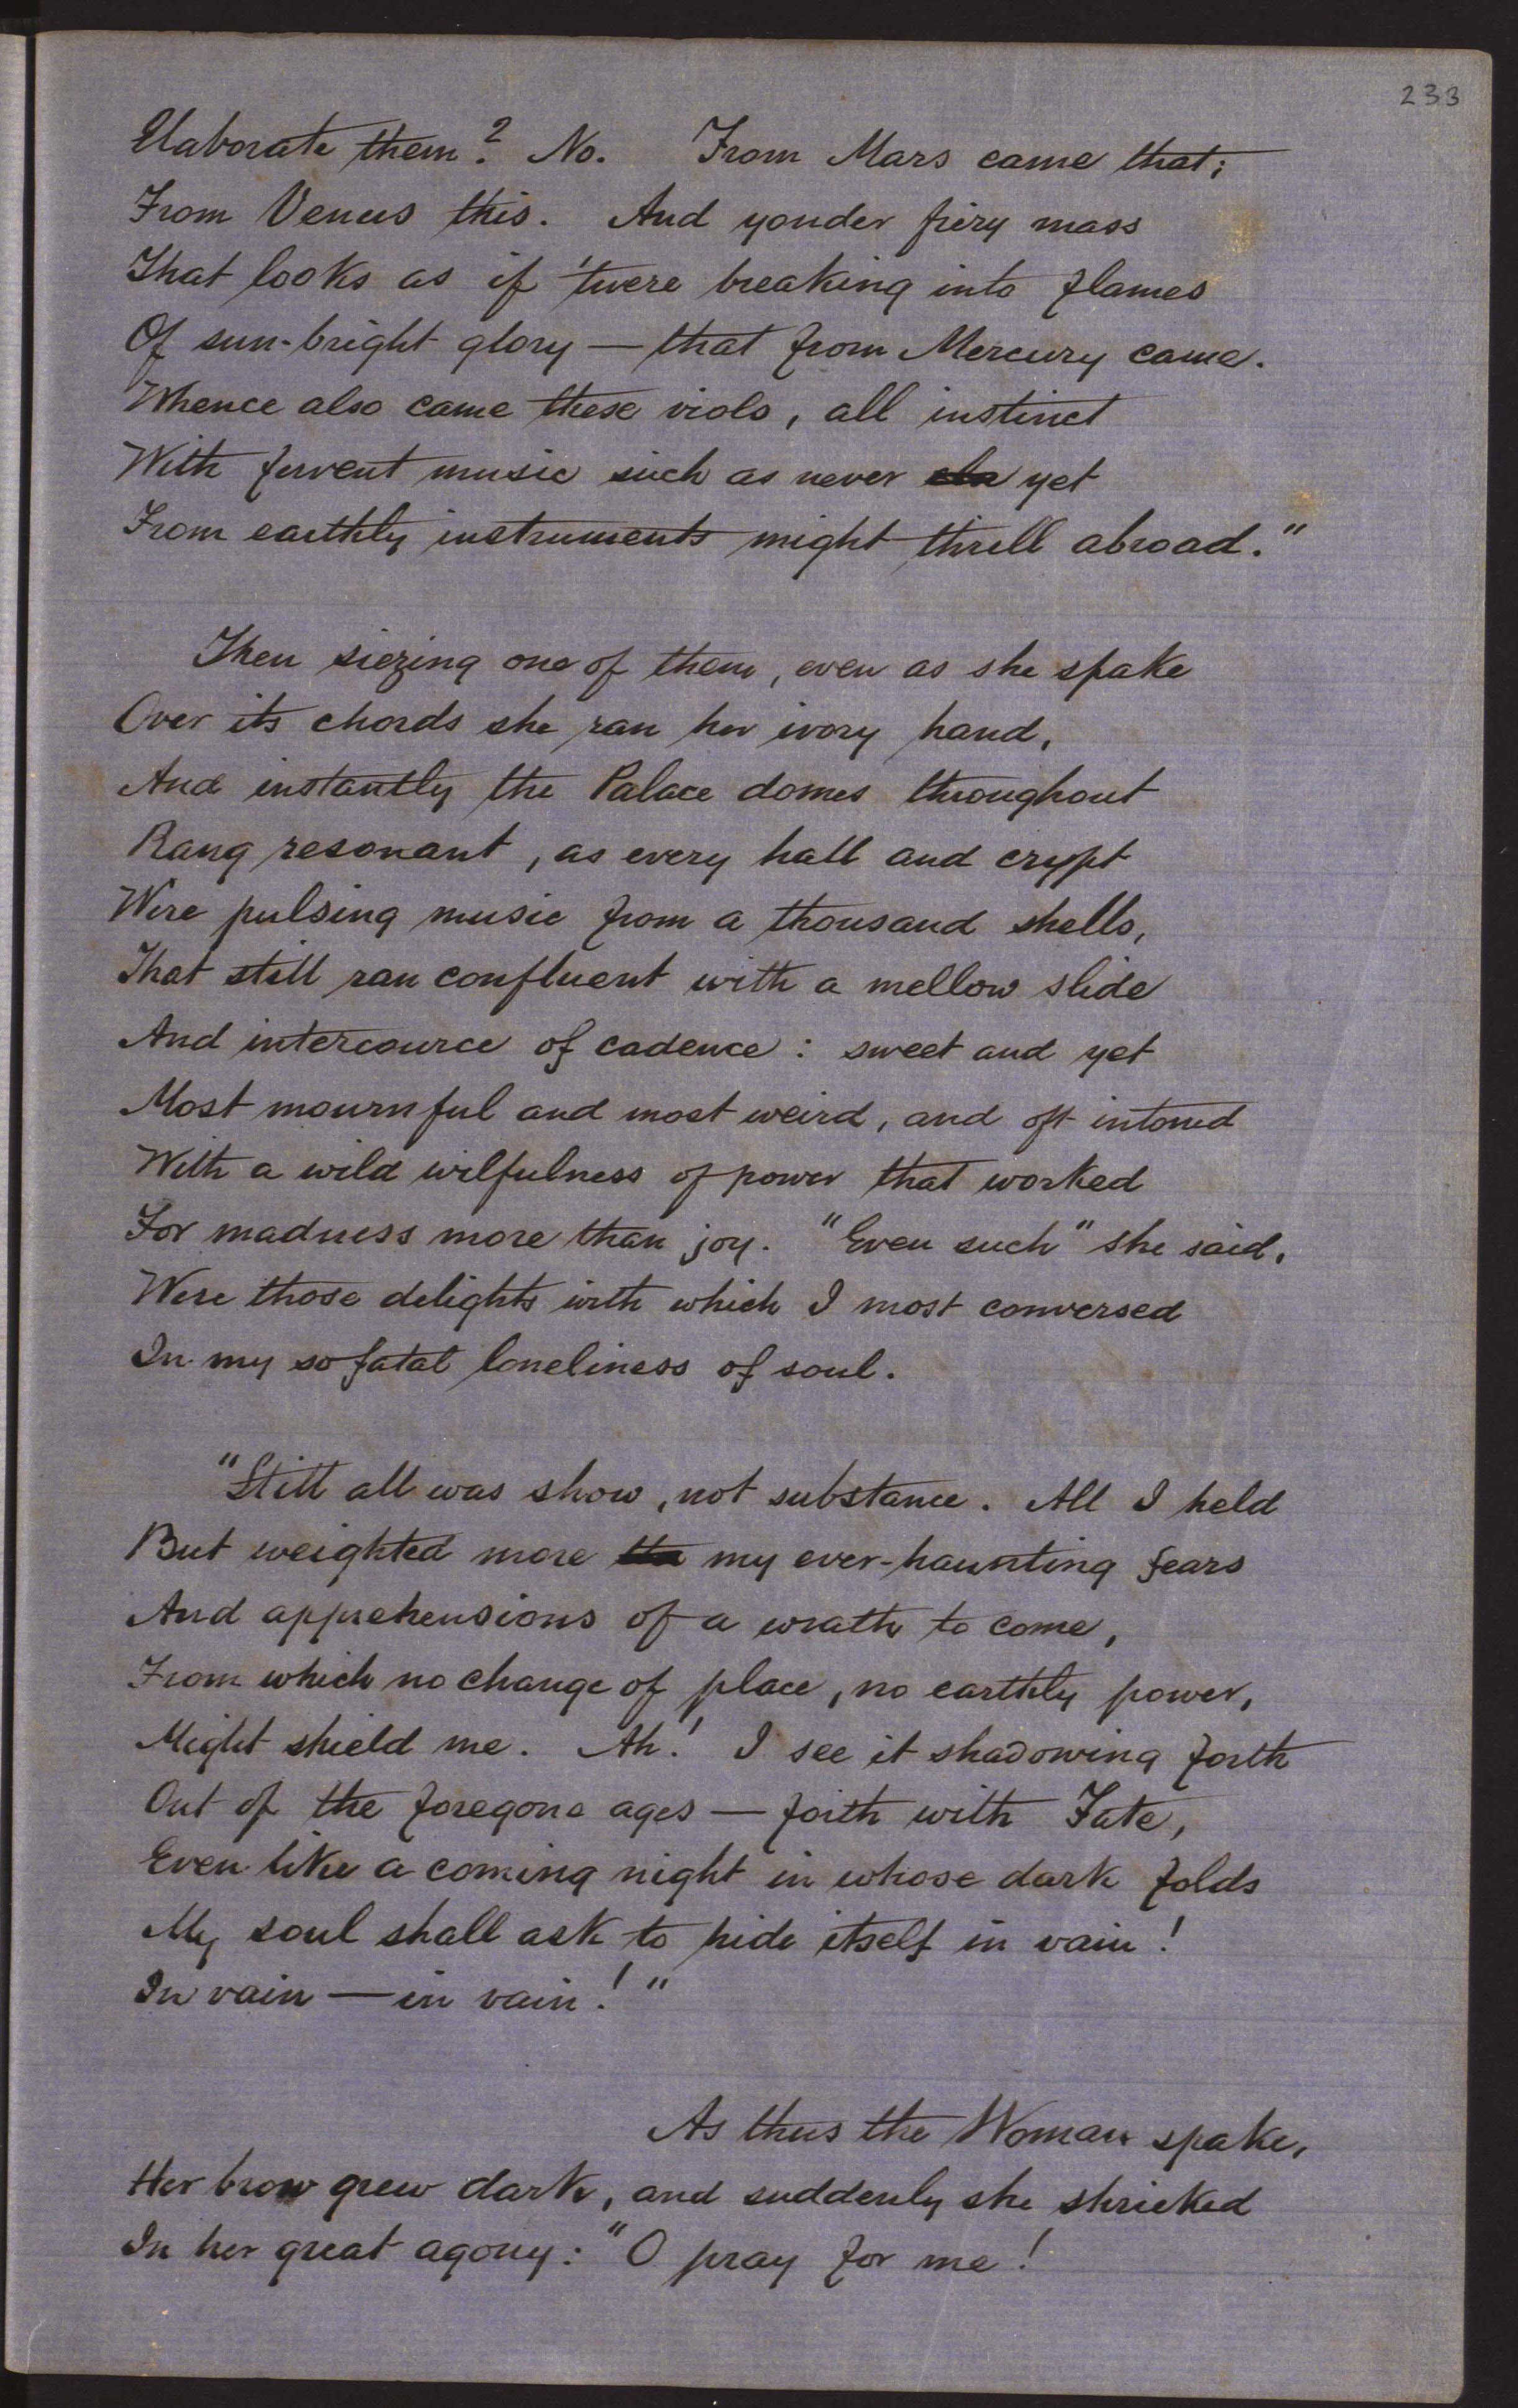 233
Elaborate them? No. From Mars came that;
From Venus this. And yonder fiery mass
That looks as if 'twere breaking into flames
Of sun-bright glory — that from Mercury came.
Whence also came these viols, all instinct
With fervent music such as never yet
From earthly instruments might thrill abroad."
Then siezing one of them, even as she spake
Over its chords she ran her ivory hand,
And instantly the Palace domes throughout
Rang resonant, as every hall and crypt
Were pulsing music from a thousand shells,
That still ran confluent with a mellow slide
And intercource of cadence: sweet and yet
Most mournful and most weird, and oft intoned
With a wild wilfulness of power that worked
For madness more than joy. "Even such" she said,
Were those delights with which I most conversed
In my so fatal loneliness of soul.
"Still all was show, not substance. All I held
But weighted more my ever-haunting fears
And apprehensions of a wrath to come,
From which no change of place, no earthly power,
Might shield me. Ah! I see it shadowing forth
Out of the foregone ages — forth with Fate,
Even like a coming night in whose dark folds
My soul shall ask to hide itself in vain!
In vain — in vain!"
As thus the Woman spake,
Her brow grew dark, and suddenly she shrieked
In her great agony: "O pray for me!